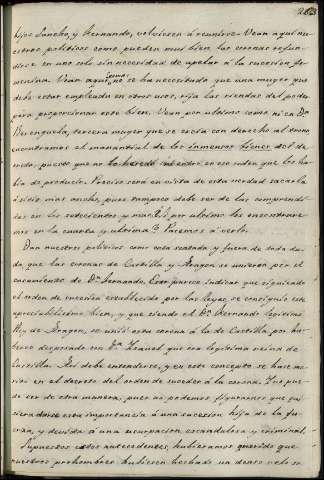 203
hijos Sancho, y Fernando, volviesen á reunirse. Vean aquí nu-
estros politicos como pueden muy bien las coronas refun-
dirse en uno solo sin necesidad de apelar á la sucesion fe-
menina. Vean aqui, como no se ha necesitado que una muger que
debe estar empleada en otros usos, rija las riendas del poder
para proporcionar este bien. Vean por ultimo como ni en Dª
Berenguela, tercera muger que se creia con derecho al trono
encontramos el manantial de los inmensos bienes del de-
cuido, puesto que no heredó en ese orden que los ha-
bia de producir. Preciso sera en vista de esta verdad sacarla
á sitio mas ancha, pues tampoco debe ser de las comprendi-
das en los antecedentes y por ultimo las encontrare-
mos en la cuarta y ultima? Pasemos á verlo.
Dan nuestros politicos como cosa sentada y fuera de toda du-
da, que las coronas de Castilla y Aragon se unieron por el
casamiento de Dn Fernando. Esto parece indicar que siguiendo
el orden de sucesion establecido por las leyes se consiguió este
apreciabilisimo bien, y que siendo el Dn Fernando legitimo
Rey de Aragon, se unió esta corona á la de Castilla por ha-
berse desposado con Dª Isabel que era legitima reina de
Castilla. Asi debe entenderse, y en este concepto se hace me-
rito en el decreto del orden de suceder á la corona. No pue-
de ser de otra manera, pues no podemos figurarnos que qui-
siera darse esta importancia á una sucesion hija de la fu-
erza, y devida á una usurpacion escandalosa y criminal.
Supuestos estos antecedentes, hubieramos querido que
nuestros prohombres hubiesen hechado un denso velo so-